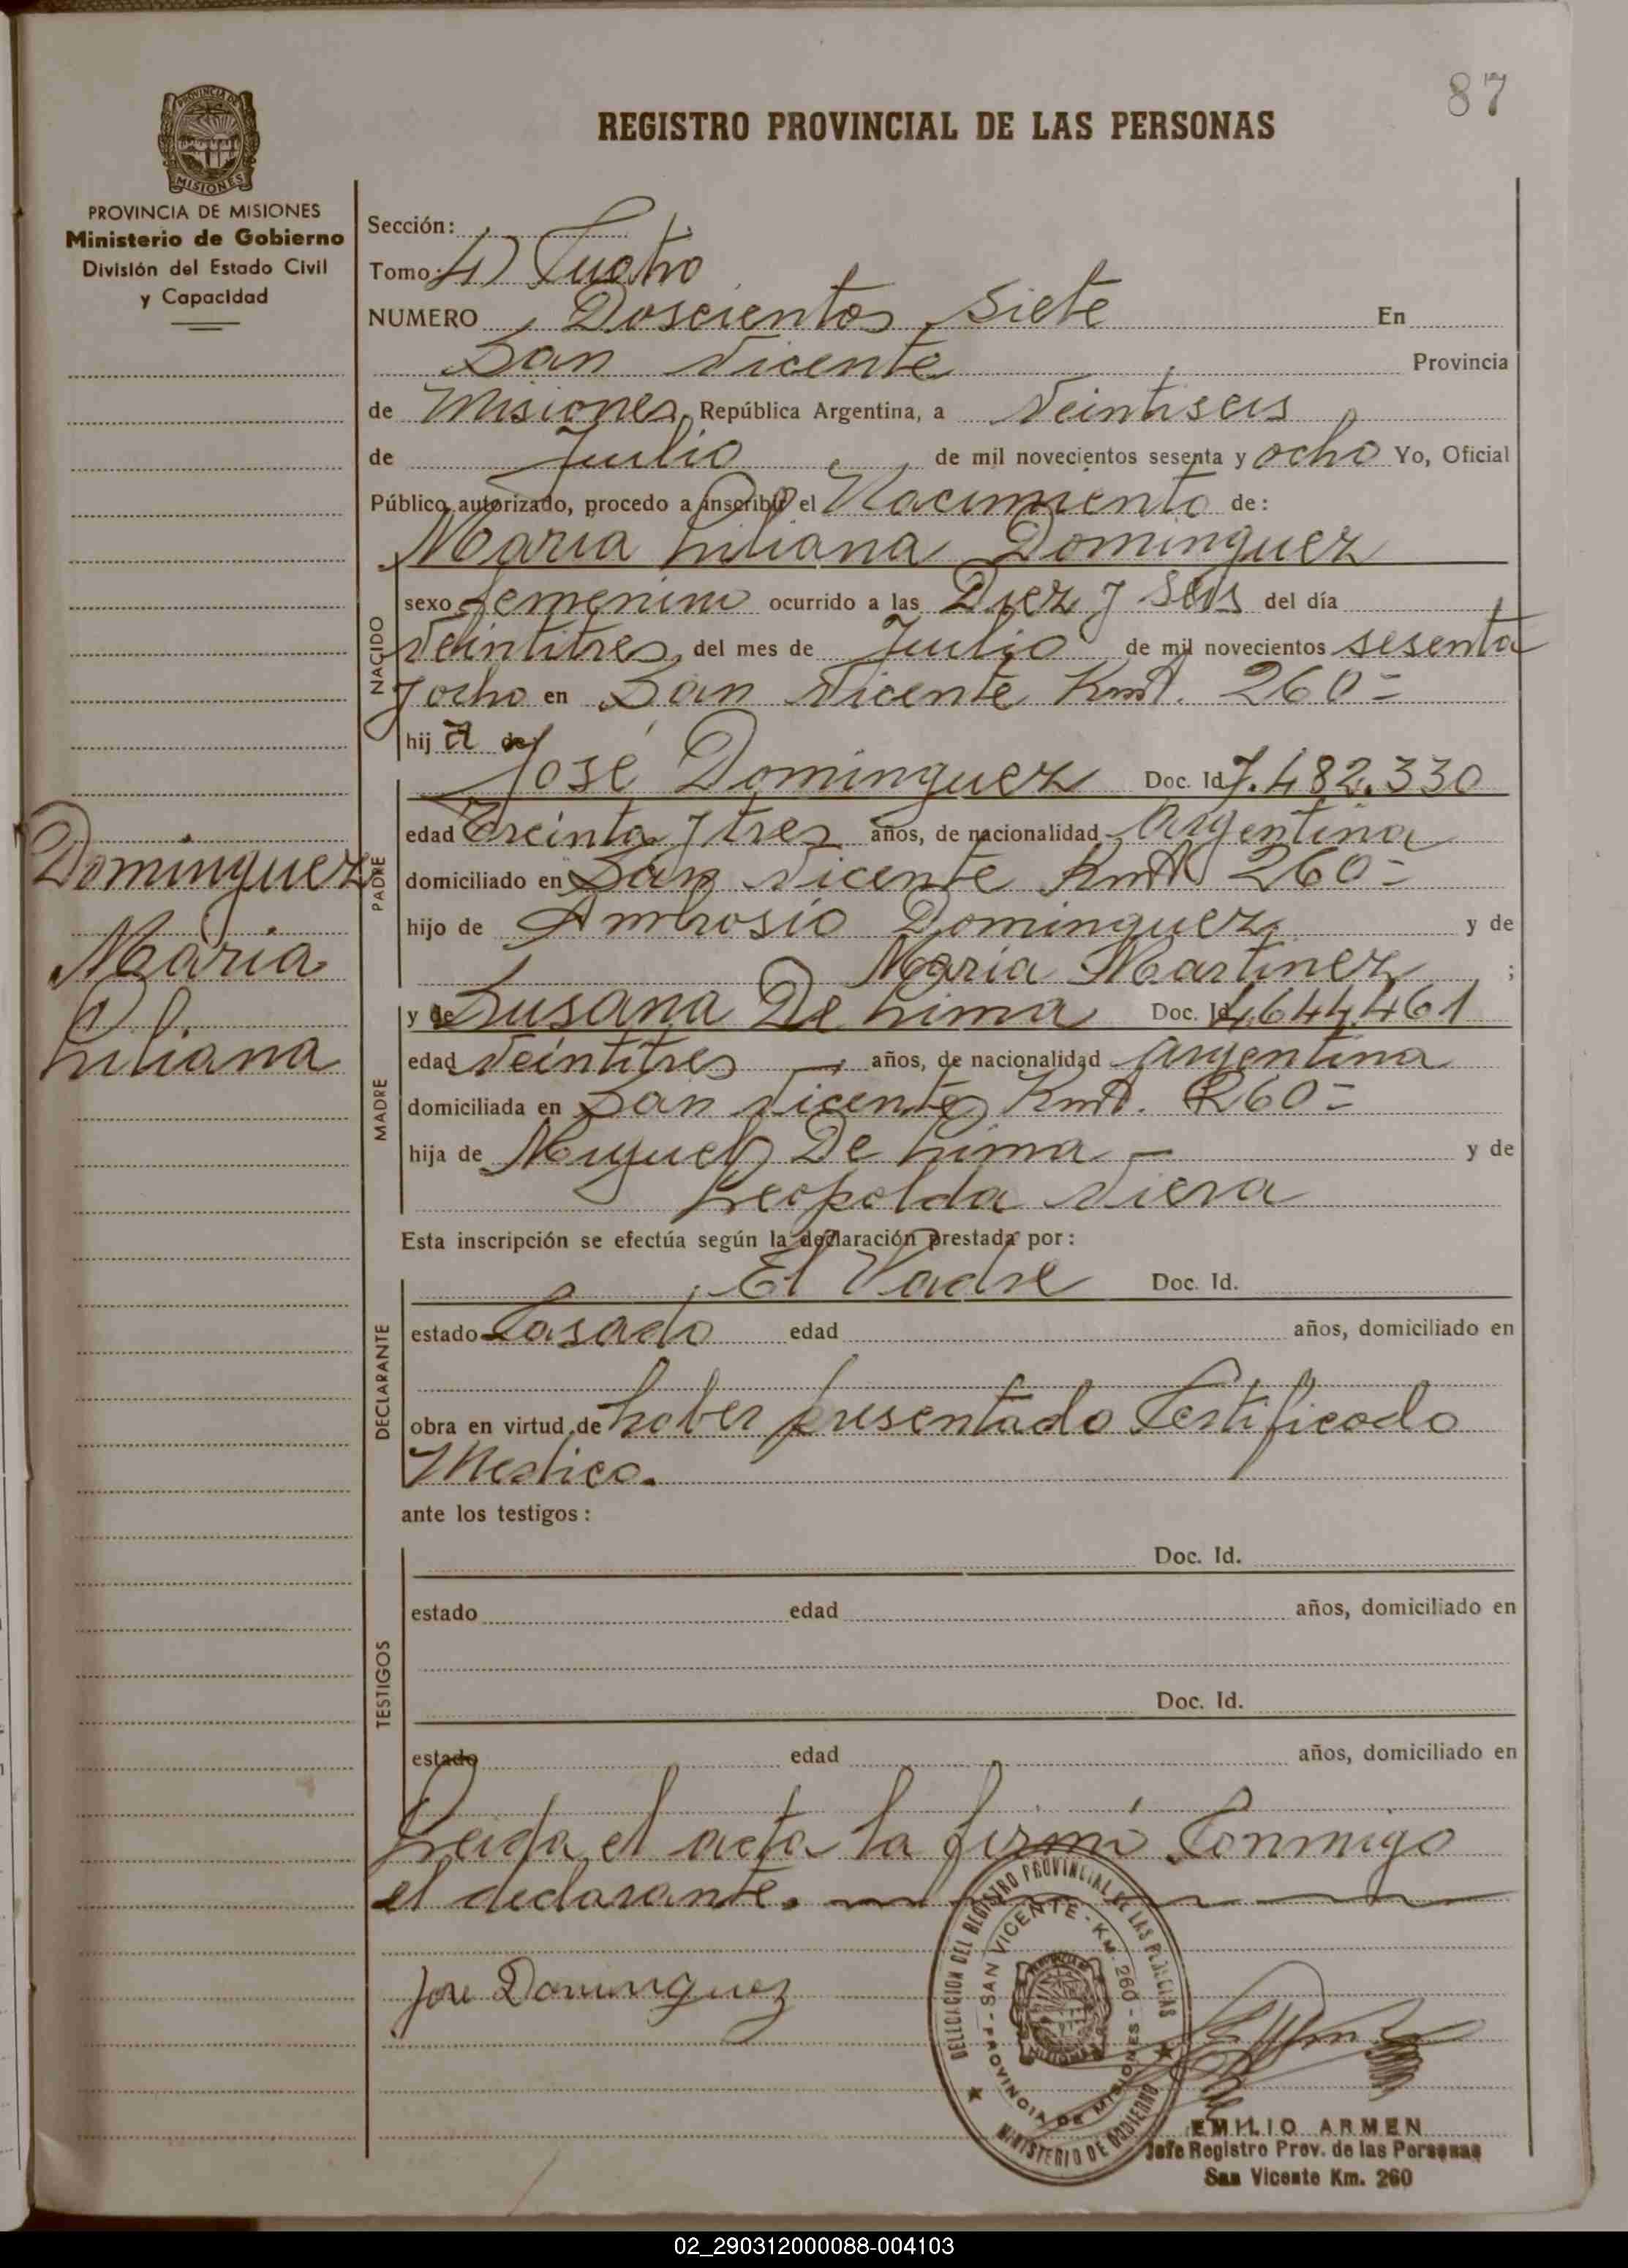 87
REGISTRO PROVINCIAL DE LAS PERSONAS
PROVINCIA DE MISIONES
PROVINCIA DE MISIONES
Ministerio de Gobierno
División del Estado Civil
y Capacidad
Sección:
Tomo: 4) Cuatro
NUMERO Doscientos siete En
San Vicente Provincia
de Misiones, República Argentina, a Veintiseis
de Julio de mil novecientos sesenta y ocho Yo, Oficial
Público autorizado, procedo a inscribir el Nacimiento de:
Maria Liliana Dominguez
NACIDO
sexo femenino ocurrido a las Diez y seis del día
Veintitres del mes de Julio de mil novecientos sesenta
y ocho en San Vicente Kmt. 260=
hij a de
PADRE
José Dominguez Doc. Id 7.482.330
edad Treinta y tres años, de nacionalidad Argentina
domiciliado en San Vicente Kmt 260=
hijo de Ambrosio Dominguez y de
Maria Martinez ;
Dominguez
Maria
Liliana
MADRE
y de Susana De Lima Doc. Id 4.644.461
edad Veintitres años, de nacionalidad Argentina
domiciliada en San Vicente Kmt. 260=
hija de Miguel De Lima - y de
Leopolda Viera
Esta inscripción se efectúa según la declaración prestada por:
DECLARANTE
El Padre Doc. Id.
estado Casado edad años, domiciliado en
obra en virtud de haber presentado Certificado
Medico.
ante los testigos:
TESTIGOS
Doc. Id.
estado edad años, domiciliado en
Doc. Id.
estado edad años, domiciliado en
Leida el acta la firmó Conmigo
el declarante.
Jose Dominguez
DELEGACION DEL REGISTRO PROVINCIAL DE LAS PERSONAS
SAN VICENTE - KM. 260 -
PROVINCIA DE MISIONES
MINISTERIO DE GOBIERNO
EMILIO ARMEN
Jefe Registro Prov. de las Personas
San Vicente Km. 260
02_290312000088-004103